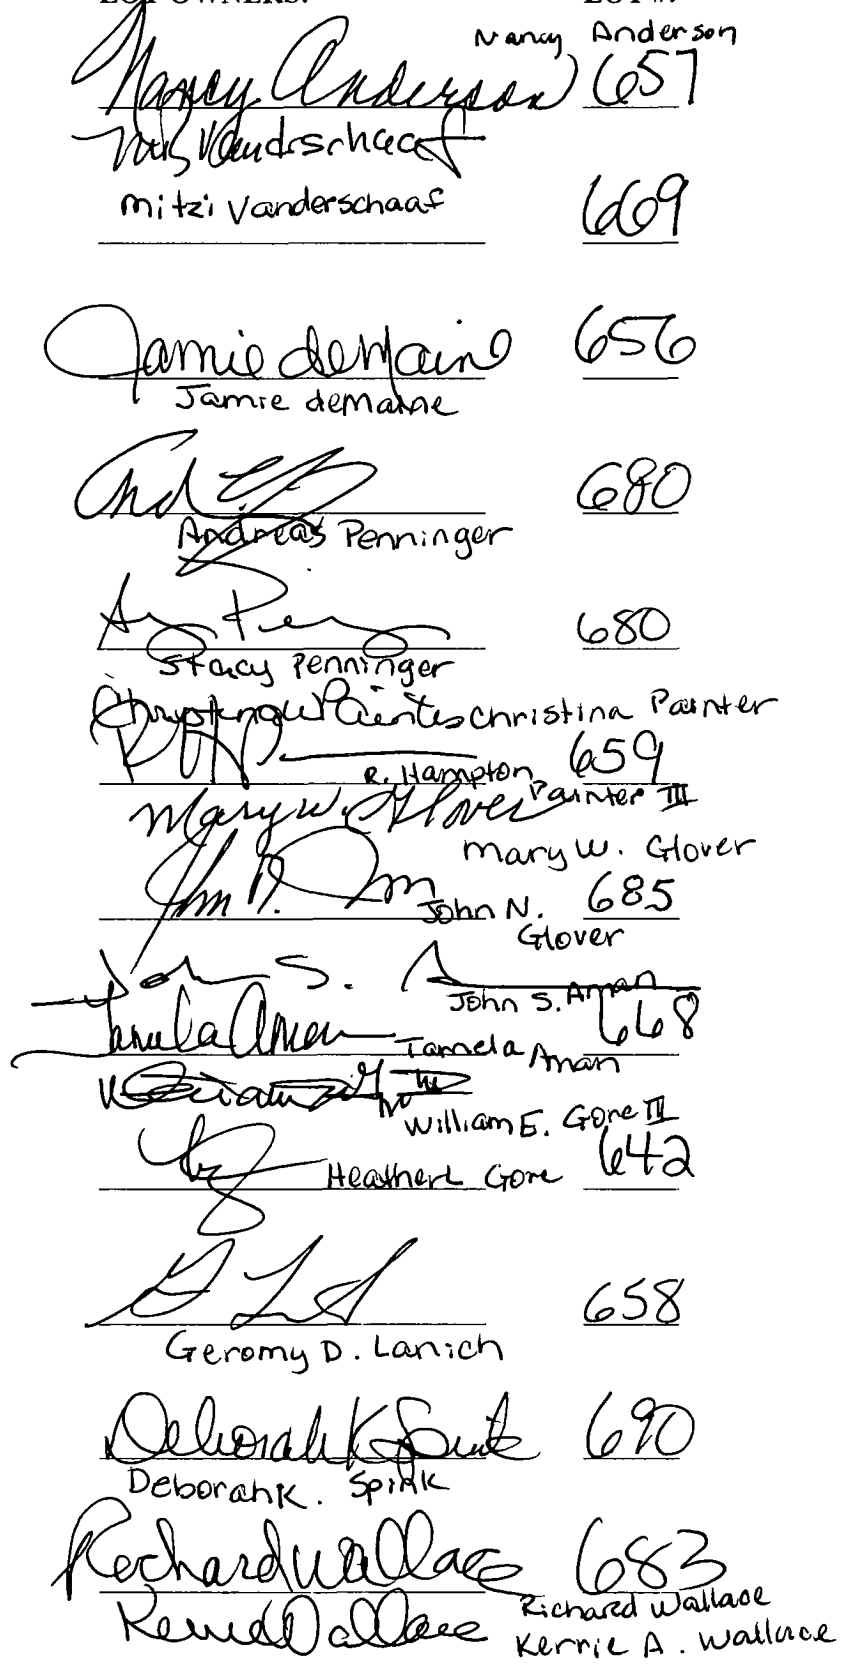 LOT OWNERS:
LOT #:
Nancy Anderson
Nancy Anderson 657
Mitzi Vanderschaaf
mitzi Vanderschaaf 669
Jamie deMaine 656
Jamie deMaine
680
Andreas Penninger
680
Stacy Penninger
Christina Painter
659
R. Hampton
Painter III
Mary W. Glover
Mary W. Glover
John N. 685
Glover
John S. Aman
John S. Aman
Tamela Aman 668
Tamela Aman
William E. Gore III
Heather L Gore 642
658
Geromy D. Lanich
Deborah K Spink 690
Deborah K. Spink
Richard Wallace 683
Richard Wallace
Kerrie A. Wallace